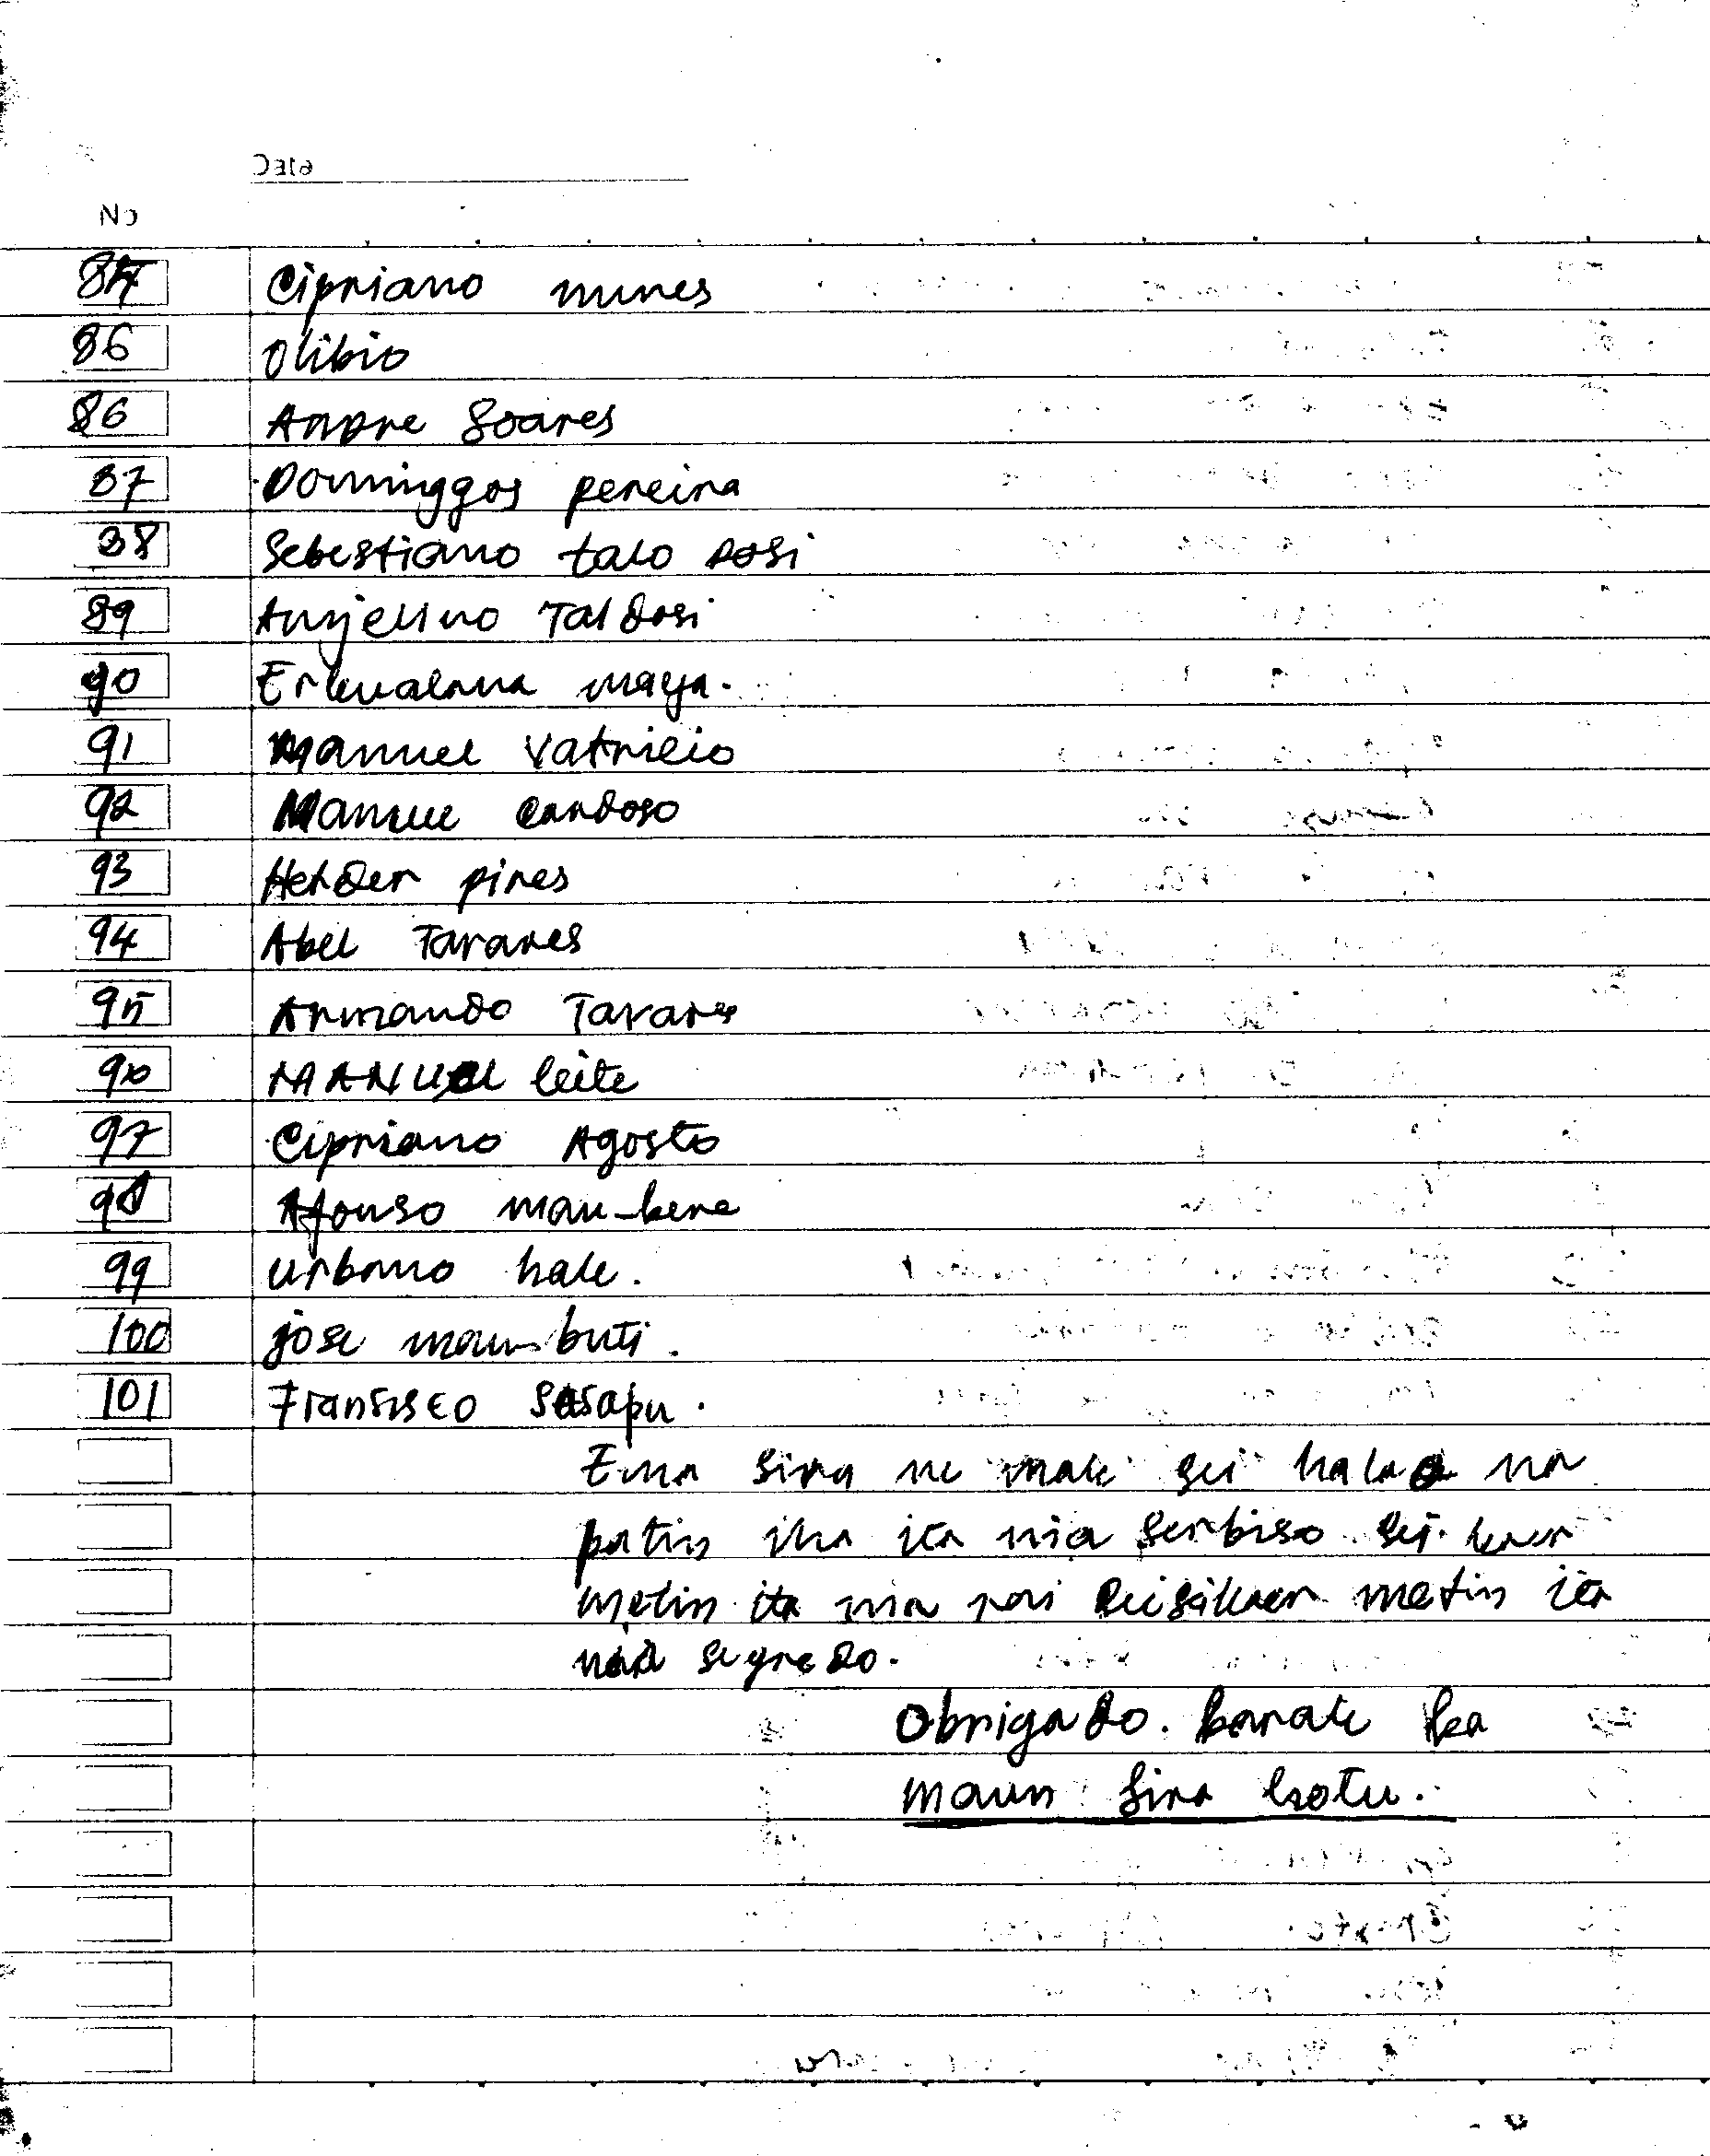 No
84 Cipriano nunes
86 Olibio
86 Andre Soares
87 Dominggos pereira
88 Sebestiano talo dosi
89 Anjelino Taldosi
90 maya.
91 Manuel Vatricio
92 Manuel Cardoso
93 Helder pires
94 Abel Tavares
95 Armando Tavares
96 MANUEL leite
97 Cipriano Agosto
98 Afonso mau-bere
99 urbano hale.
100 jose mau buti.
101 Fransisco Sasapu.
Ema sira ne mak sei halao na
patin iha ita nia serbiso sei kaer
metin ita nia metin ita
nia segredo.
Obrigado. barak ba
maun sira hotu.